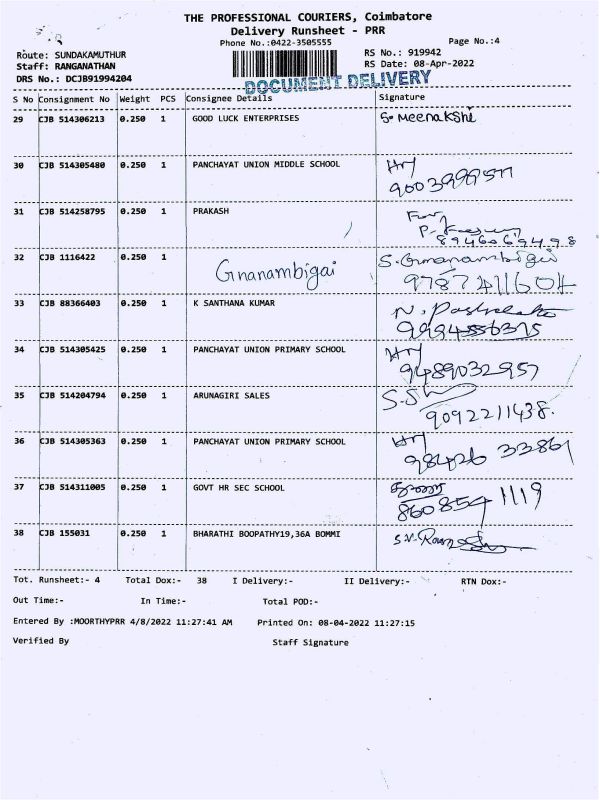 THE PROFESSIONAL COURIERS, Coimbatore
Delivery Runsheet - PRR
Phone No.:0422-3505555
Page No.:4
Route: SUNDAKAMUTHUR
RS No.: 919942
Staff: RANGANATHAN
RS Date: 08-Apr-2022
DRS No.: DCJB91994204
DOCUMENT DELIVERY
S No Consignment No Weight PCS Consignee Details Signature
29 CJB 514306213 0.250 1 GOOD LUCK ENTERPRISES S. Meenakshi
30 CJB 514305480 0.250 1 PANCHAYAT UNION MIDDLE SCHOOL
31 CJB 514258795 0.250 1 PRAKASH
32 CJB 1116422 0.250 1 Gnanambigai S. Gnanambigai
9787411604
33 CJB 88366403 0.250 1 K SANTHANA KUMAR
34 CJB 514305425 0.250 1 PANCHAYAT UNION PRIMARY SCHOOL
9489032957
35 CJB 514204794 0.250 1 ARUNAGIRI SALES
9092211438.
36 CJB 514305363 0.250 1 PANCHAYAT UNION PRIMARY SCHOOL
98426 33861
37 CJB 514311005 0.250 1 GOVT HR SEC SCHOOL
860854 1119
38 CJB 155031 0.250 1 BHARATHI BOOPATHY19,36A BOMMI
Tot. Runsheet:- 4 Total Dox:- 38 I Delivery:- II Delivery:- RTN Dox:-
Out Time:- In Time:- Total POD:-
Entered By :MOORTHYPRR 4/8/2022 11:27:41 AM Printed On: 08-04-2022 11:27:15
Verified By Staff Signature